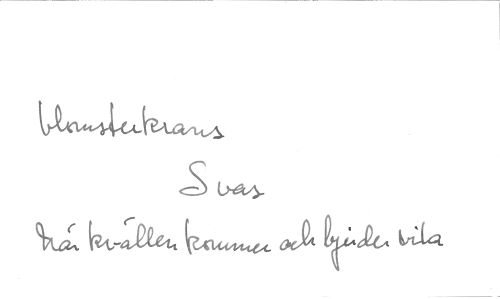 blomsterkrans
Svas
När kvällen kommer och bjuder vila